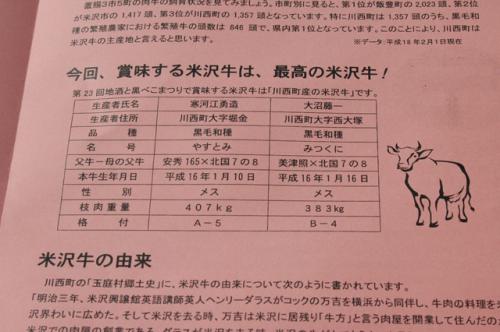 置賜3市5町の肉牛の飼育状況を見てみましょう。市町別に見ると、第1位が飯豊町の2,023頭、第2位
が米沢市の1,417頭、第3位が川西町の1,357頭となっています。特に川西町は1,357頭のうち、黒毛和
種の繁殖農家における繁殖牛の頭数は846頭で、県内第1位となっています。このことにより、川西町は
米沢牛の主産地と言えると思います。
※データ:平成18年2月1日現在
今回、賞味する米沢牛は、最高の米沢牛!
第23回地酒と黒べこまつりで賞味する米沢牛は「川西町産の米沢牛」です。
生産者氏名 寒河江勇造 大沼藤一
生産者住所 川西町大字堀金 川西町大字西大塚
品種 黒毛和種 黒毛和種
名号 やすとみ みつくに
父牛－母の父牛 安秀165×北国7の8 美津照×北国7の8
本牛生年月日 平成16年1月10日 平成16年1月16日
性別 メス メス
枝肉重量 407kg 383kg
格付 A－5 B－4
米沢牛の由来
川西町の「玉庭村郷土史」に、米沢牛の由来について次のように書かれています。
「明治三年、米沢興譲館英語講師英人ヘンリーダラスがコックの万吉を横浜から同伴し、牛肉の料理を
沢界わいに広めた。そして米沢を去る時、万吉は米沢に居残り「牛方」と言う肉屋を開業して住んだの